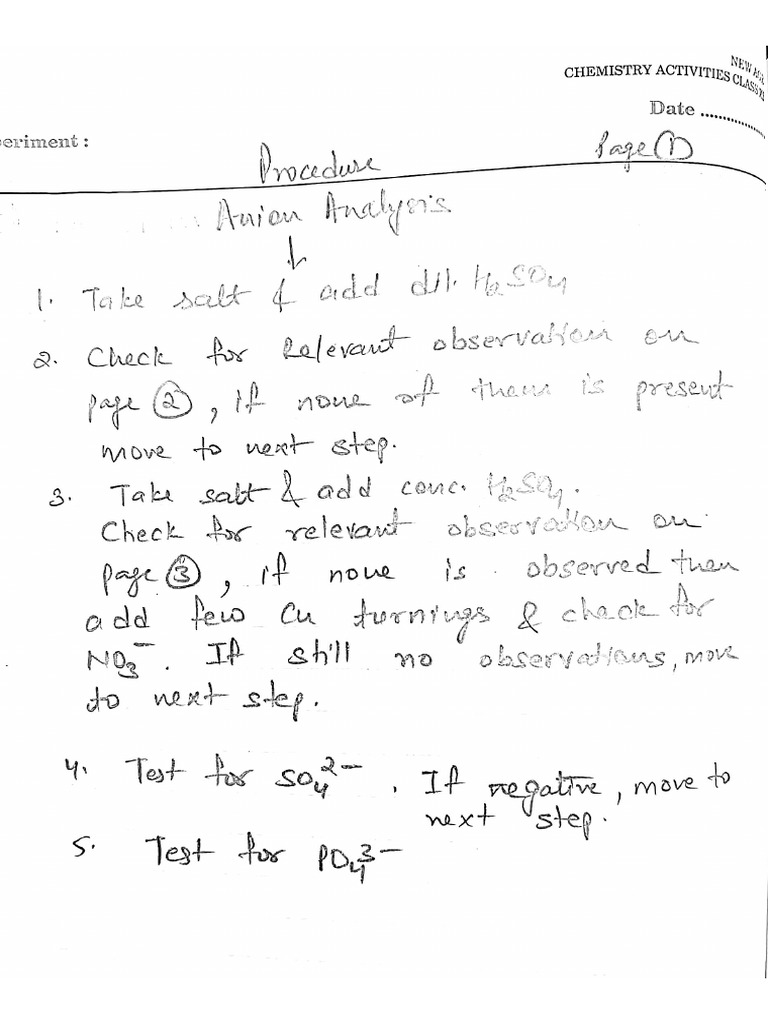 CHEMISTRY ACTIVITIES CLASS
Date ..................
eriment :
Page ①
Procedure
Anion Analysis
↓
1. Take salt & add dil. H₂SO₄
2. Check for Relevant observation on
page ②, if none of them is present
move to next step.
3. Take salt & add conc. H₂SO₄.
Check for relevant observation on
page ③, if none is observed then
add few Cu turnings & check for
NO₃⁻. If still no observations, move
to next step.
4. Test for SO₄²⁻. If negative, move to
next step.
5. Test for PO₄³⁻